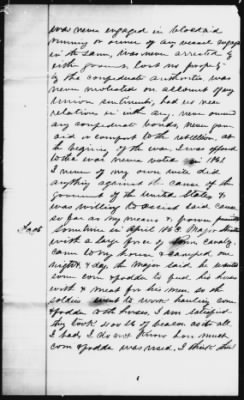 was never engaged in blockaid
running or owner of any vessel engaged
in the same, was never arrested by
either government, lost no property
by the confederate authorities was
never molested on account of my
Union sentiments, had no near
relation in with any, never owned
any confederate bonds, never gave
aid or comfort to the rebellion, at
the begining of the war I was opposed
to the war never voted in 1861
I never of my own will did
anything against the cause of the
Government of the united states &
was willing to assist said cause
so far as my means & power permitted
Sometime in April 1863, Major
with a large force of cavalry
came to my house & camped one
night & day, the Major said he wanted
some corn & fodder to feed his horses
with & meat for his men, so the
soldiers went to work hauling corn
& fodder to the horses. I am satisfied
they took 200 lbs of beacon as it all
I had, I do not know how much
corn & fodder was used, I think that